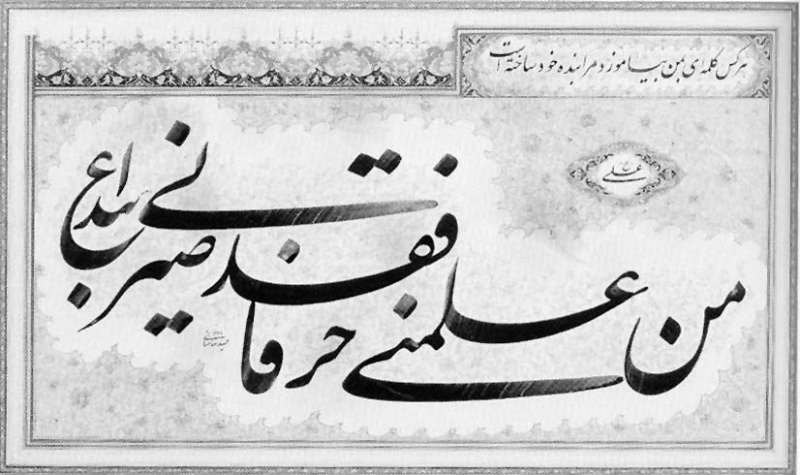 هر کس کلمه‌ای بمن بیاموزد مرا بنده خود ساخته است
علی
من علمنی حرفا فقد صیرنی عبدا